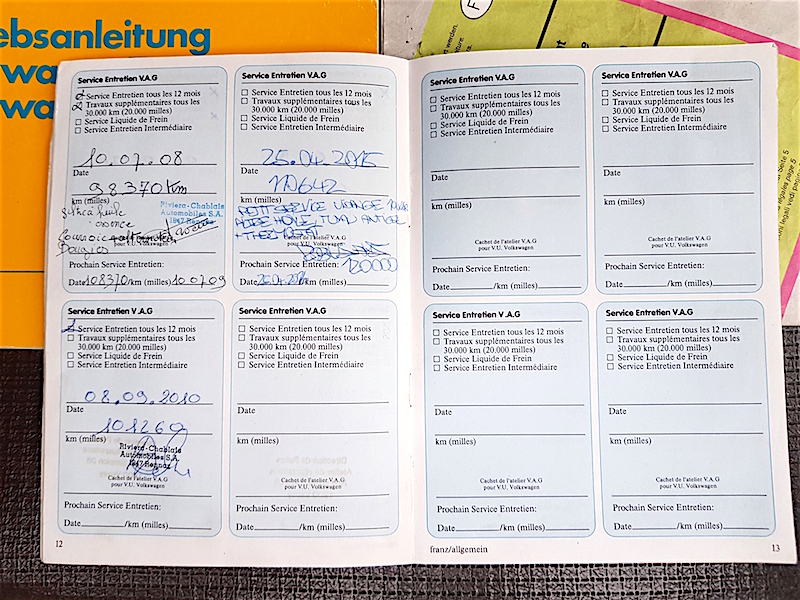 ebsanleitung
Service Entretien V.A.G
Service Entretien tous les 12 mois
Travaux supplémentaires tous les
30.000 km (20.000 milles)
Service Liquide de Frein
Service Entretien Intermédiaire
10.07.08
Date
98370 km
km (milles)
Riviera-Chablais
Automobiles S.A.
1847 Rennaz
pour V.U. Volkswagen
Prochain Service Entretien:
Date 108370/km (milles) 10.07.09
Service Entretien V.A.G
Service Entretien tous les 12 mois
Travaux supplémentaires tous les
30.000 km (20.000 milles)
Service Liquide de Frein
Service Entretien Intermédiaire
25.04.2015
Date
110642
km (milles)
PETIT SERVICE VIDANGE
Cachet de l'atelier V.A.G
pour V.U. Volkswagen
Prochain Service Entretien:
120000
Date 25.04.2016 /km (milles)
Service Entretien V.A.G
Service Entretien tous les 12 mois
Travaux supplémentaires tous les
30.000 km (20.000 milles)
Service Liquide de Frein
Service Entretien Intermédiaire
08.09.2010
Date
101260
km (milles)
Riviera-Chablais
Automobiles S.A.
1847 Rennaz
Cachet de l'atelier V.A.G
pour V.U. Volkswagen
Prochain Service Entretien:
Date /km (milles)
Service Entretien V.A.G
Service Entretien tous les 12 mois
Travaux supplémentaires tous les
30.000 km (20.000 milles)
Service Liquide de Frein
Service Entretien Intermédiaire
Date
km (milles)
Cachet de l'atelier V.A.G
pour V.U. Volkswagen
Prochain Service Entretien:
Date /km (milles)
12
Service Entretien V.A.G
Service Entretien tous les 12 mois
Travaux supplémentaires tous les
30.000 km (20.000 milles)
Service Liquide de Frein
Service Entretien Intermédiaire
Date
km (milles)
Cachet de l'atelier V.A.G
pour V.U. Volkswagen
Prochain Service Entretien:
Date /km (milles)
Service Entretien V.A.G
Service Entretien tous les 12 mois
Travaux supplémentaires tous les
30.000 km (20.000 milles)
Service Liquide de Frein
Service Entretien Intermédiaire
Date
km (milles)
Cachet de l'atelier V.A.G
pour V.U. Volkswagen
Prochain Service Entretien:
Date /km (milles)
Service Entretien V.A.G
Service Entretien tous les 12 mois
Travaux supplémentaires tous les
30.000 km (20.000 milles)
Service Liquide de Frein
Service Entretien Intermédiaire
Date
km (milles)
Cachet de l'atelier V.A.G
pour V.U. Volkswagen
Prochain Service Entretien:
Date /km (milles)
Service Entretien V.A.G
Service Entretien tous les 12 mois
Travaux supplémentaires tous les
30.000 km (20.000 milles)
Service Liquide de Frein
Service Entretien Intermédiaire
Date
km (milles)
Cachet de l'atelier V.A.G
pour V.U. Volkswagen
Prochain Service Entretien:
Date /km (milles)
franz/allgemein
13